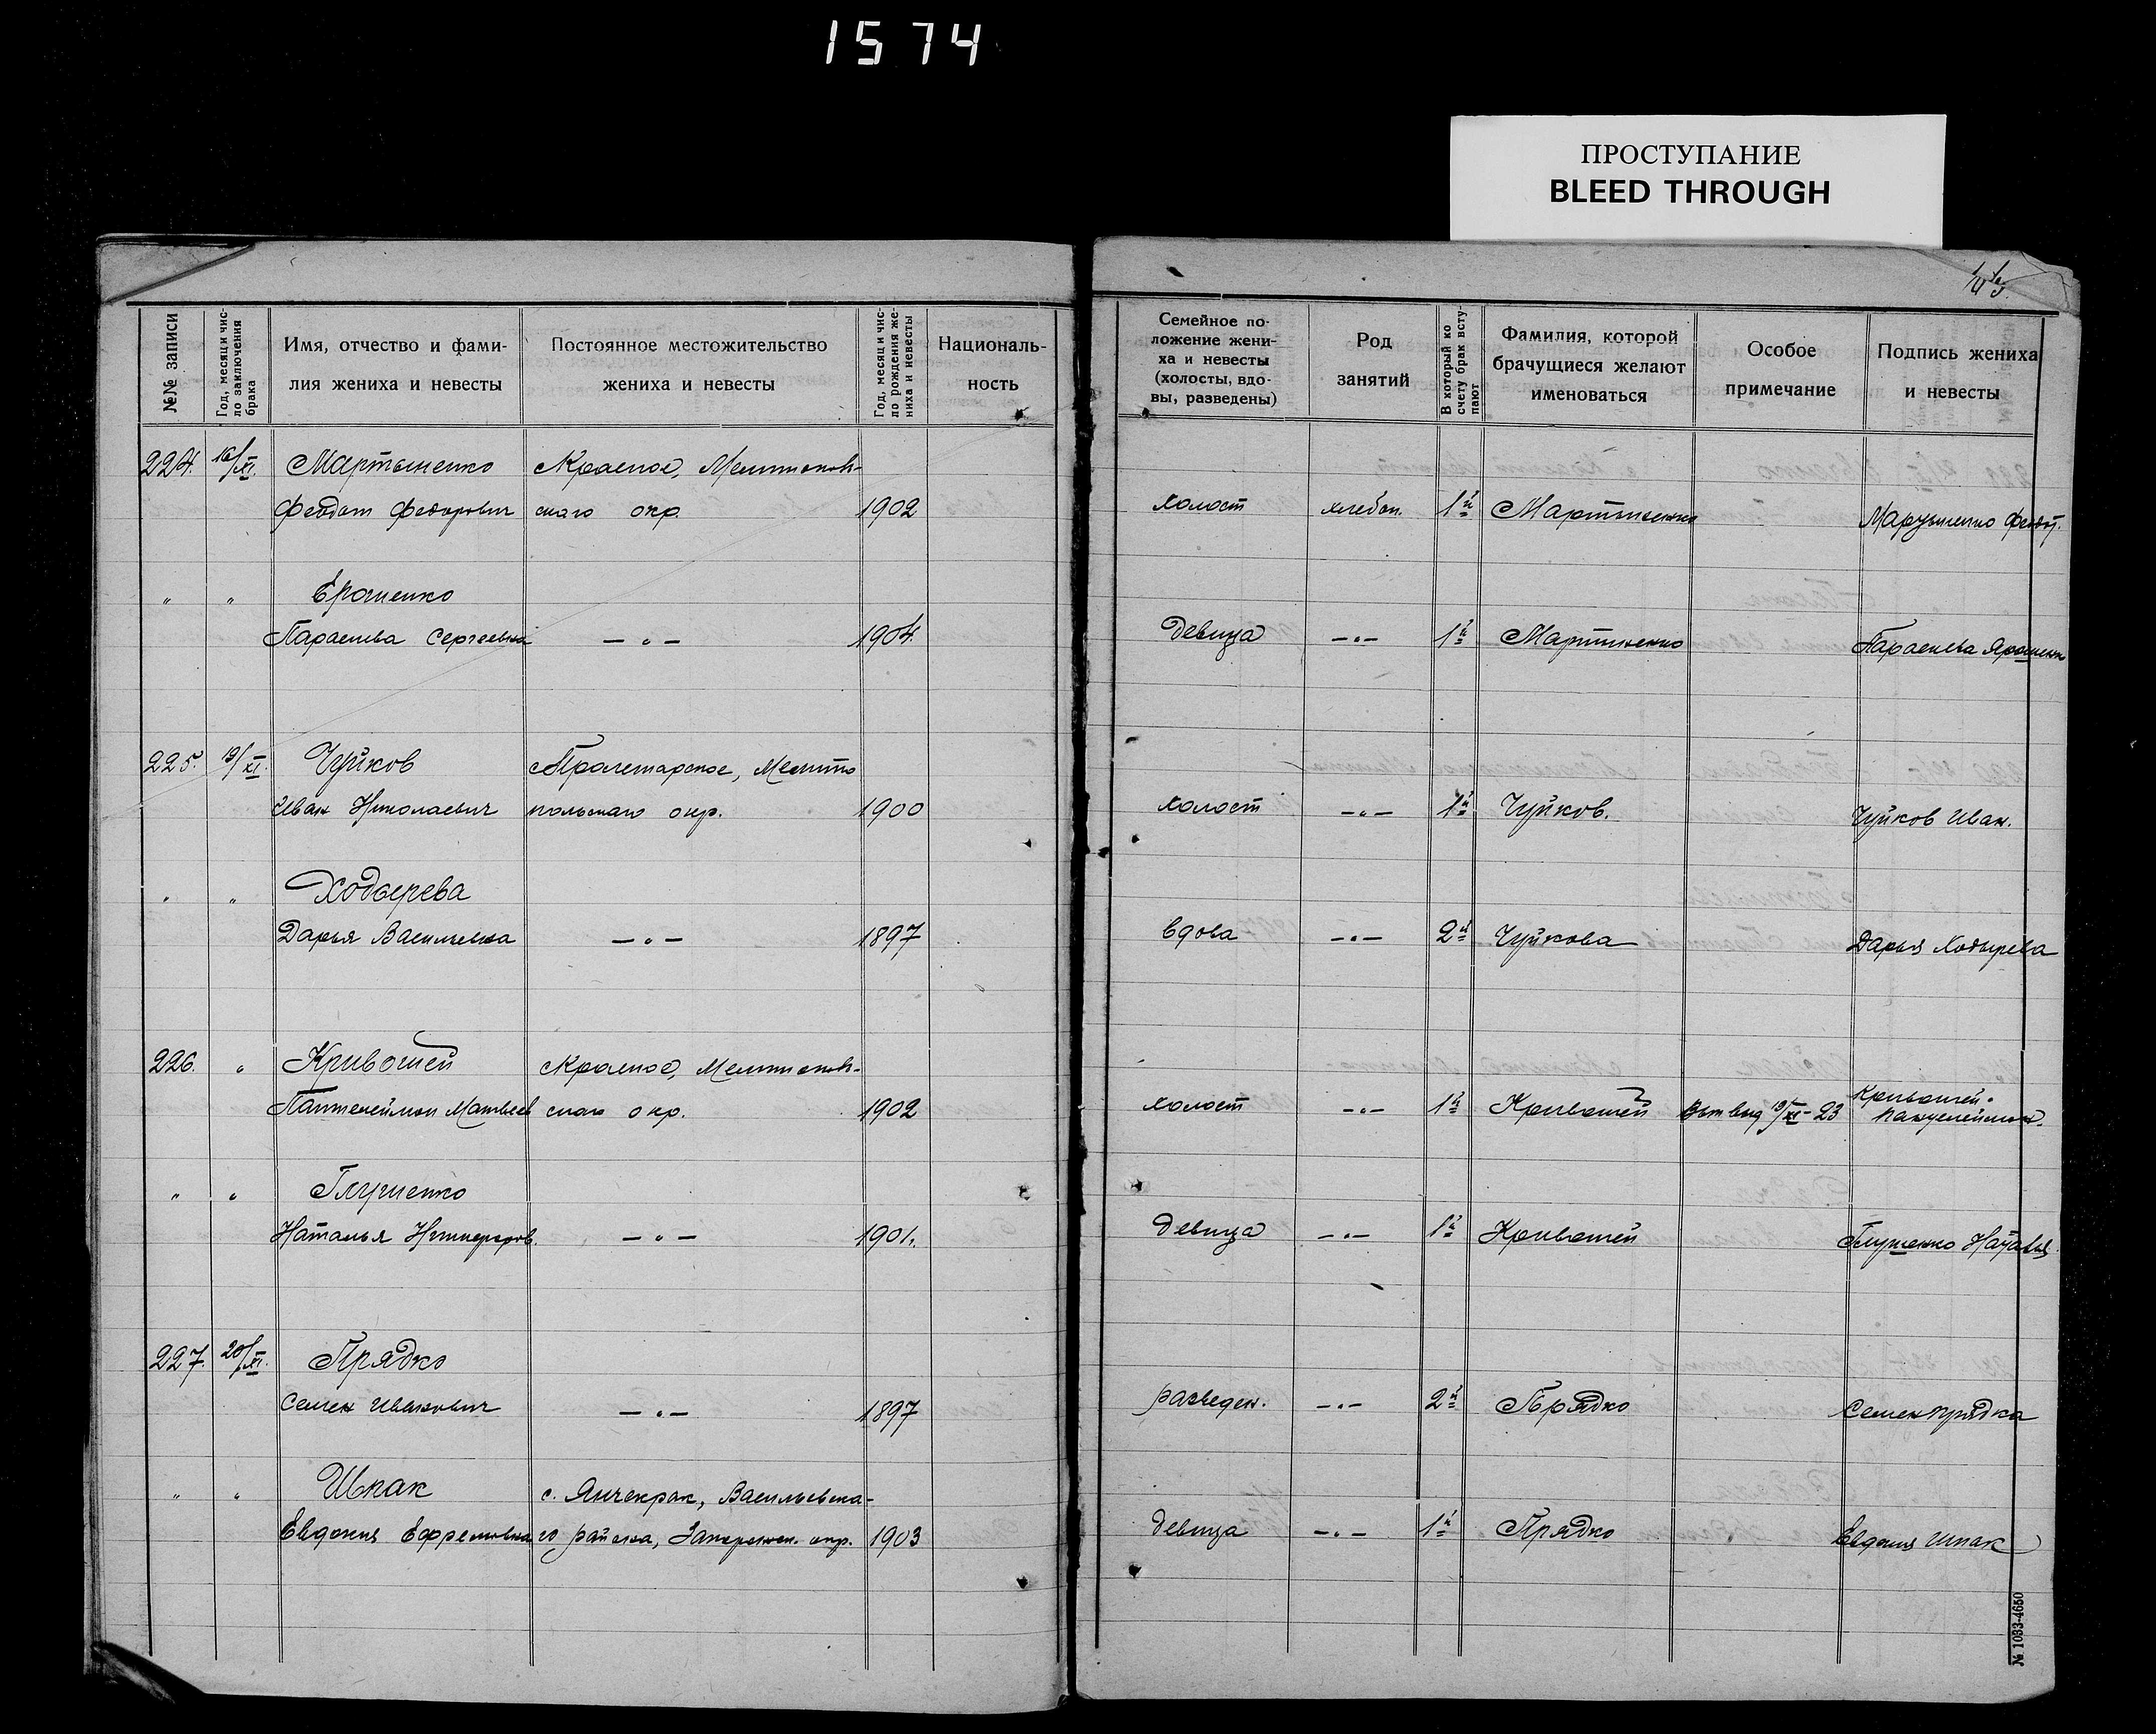 1574
ПРОСТУПАНИЕ
BLEED THROUGH
№№ записи
Год, месяц и чис-
ло заключения
брака
Имя, отчество и фами-
лия жениха и невесты
Постоянное местожительство
жениха и невесты
Год, месяц и чис-
ло рождения же-
ниха и невесты
Националь-
ность
Семейное по-
ложение жени-
ха и невесты
(холосты, вдо-
вы, разведены)
Род
занятий
В который ко
счету брак всту-
пают
Фамилия, которой
брачущиеся желают
именоваться
Особое
примечание
Подпись жениха
и невесты
224. 16/XI. Мартыненко с Красное, Мелитополь-
Феодот Федорович скаго окр. 1902 холост хлебоп. 1й Мартыненко Мартыненко Федот.
" " Ерошенко
Параскева Сергеевна — " — 1904. девица — " — 1й Мартыненко Параскева Ярошенко
225. 19/XI. Чуйков с Пролетарское, Мелито
Иван Николаевич польскаго окр. 1900 холост — " — 1й Чуйков. Чуйков Иван.
" " Ходырева
Дарья Васильевна — " — 1897 вдова — " — 2й Чуйкова Дарья Ходырева
226. " Кривошей с Красное, Мелитополь-
Пантелеймон Матвеев скаго окр. 1902 холост — " — 1й Кривошей 19/XI-23 Кривошей
Пантелеймон.
" " Глушенко
Наталья Никифоров. — " — 1901. девица — " — 1й Кривошей Глушенко Наталья
227. 20/XI. Прядко
Семен Иванович — " — 1897 разведен. — " — 2й Прядко Семен Прядка
" " Шпак с. Янчекрак, Васильевска-
Евдокия Ефремовна го района, Запорожск. окр. 1903 девица — " — 1й Прядко Евдокия Шпак
№ 1033-4650